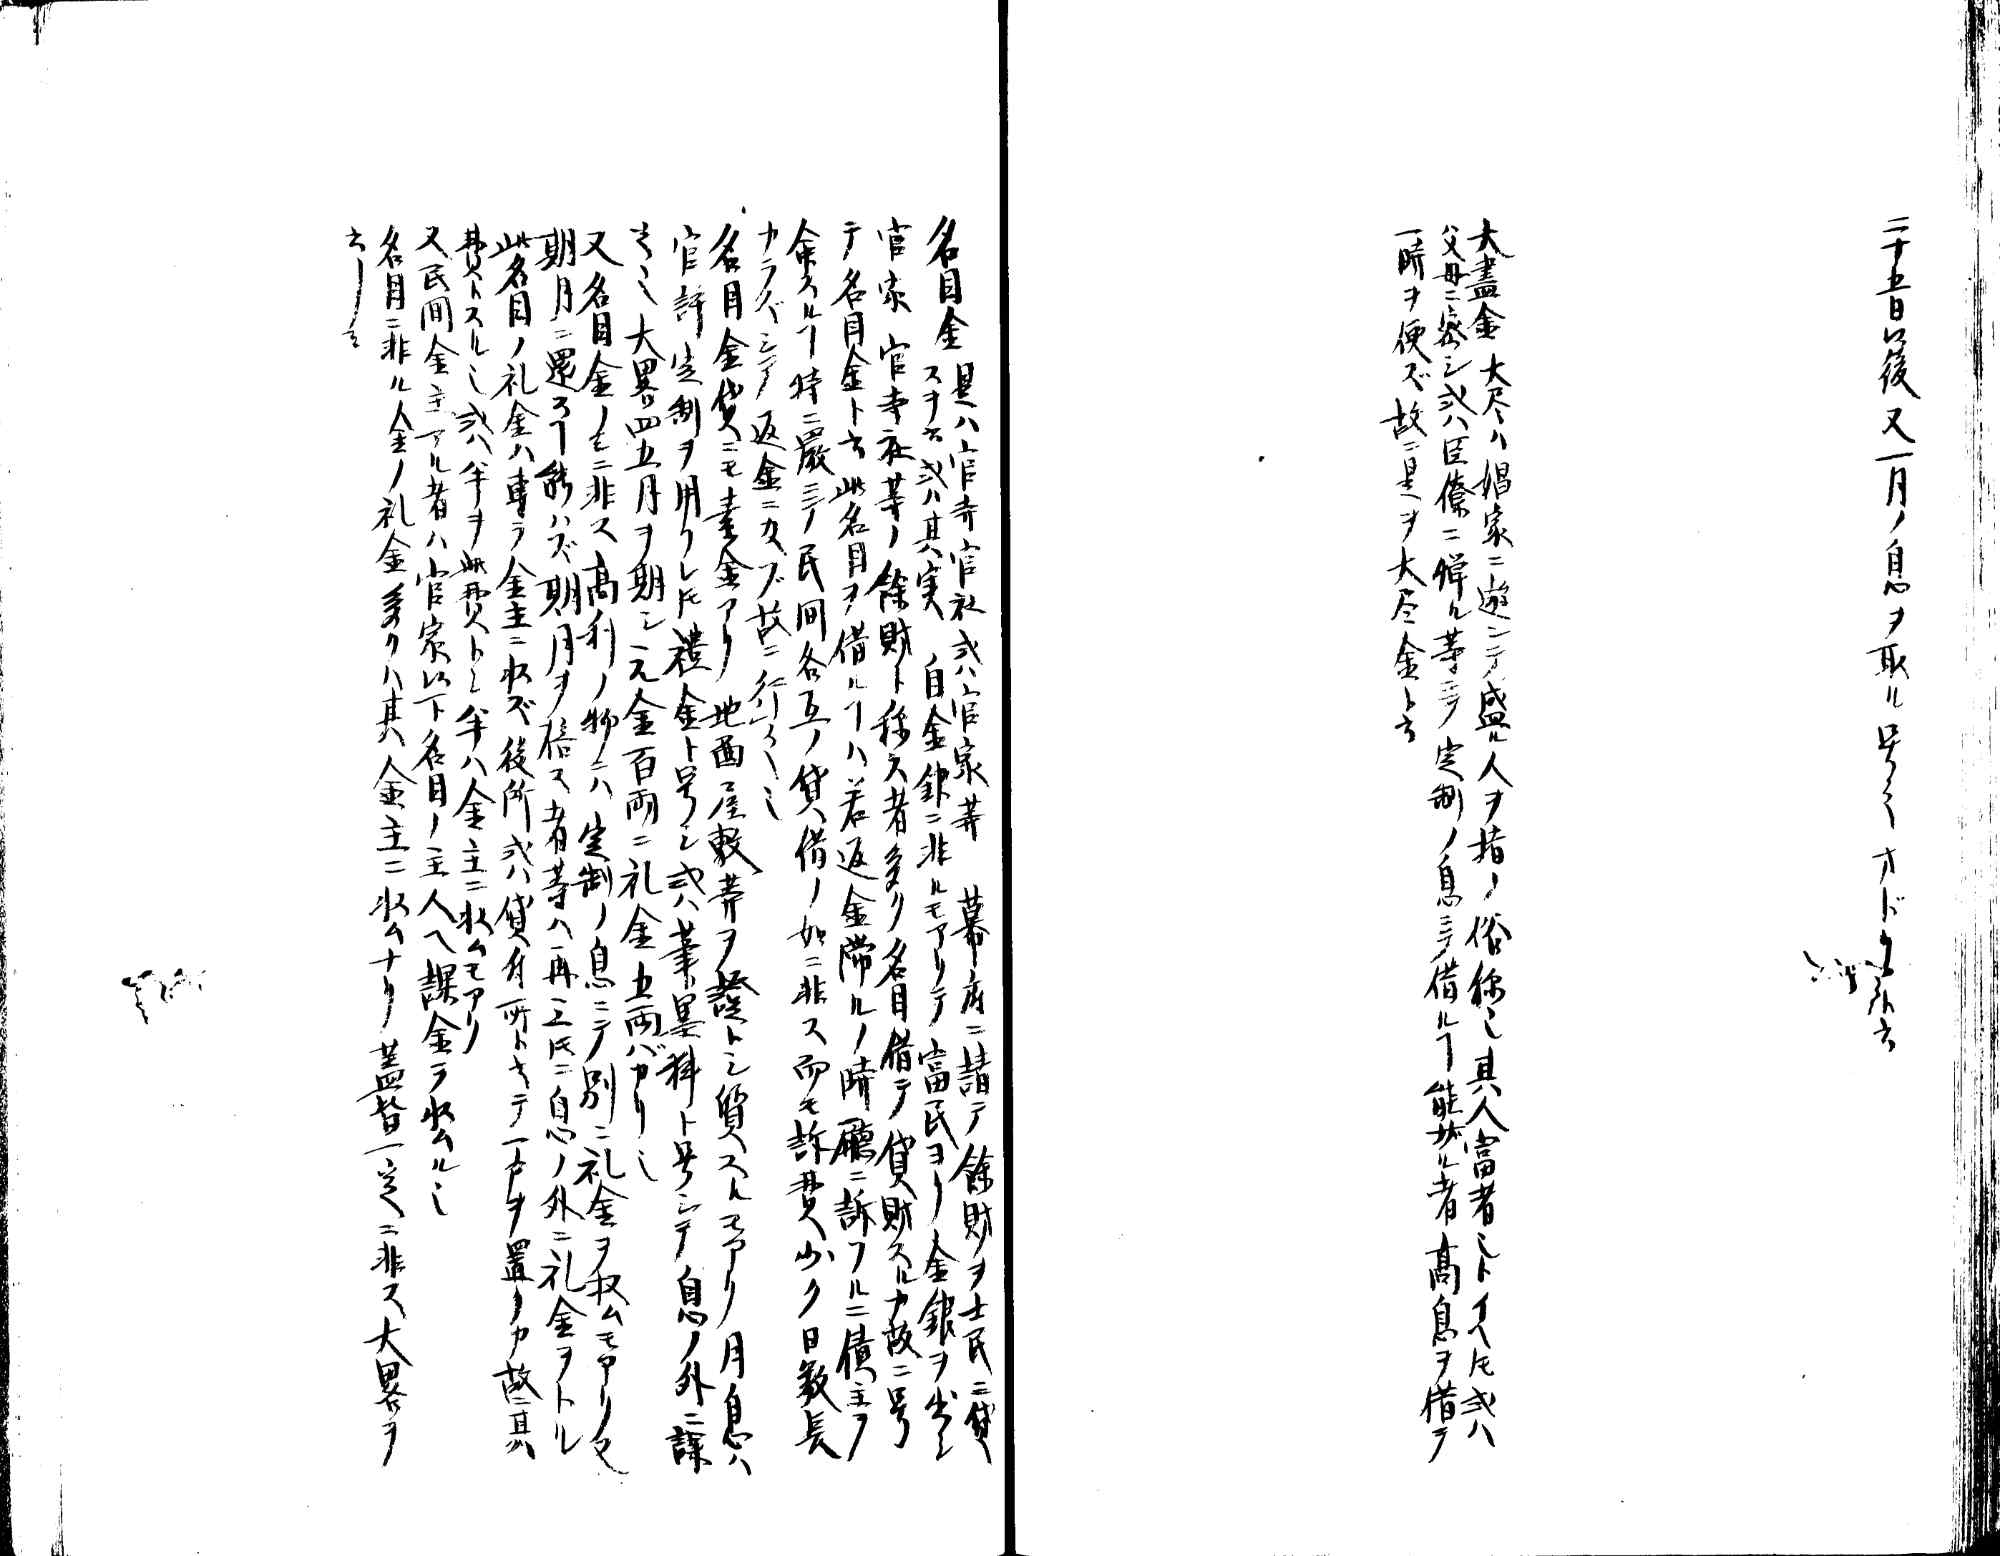 二十五日以後又一月ノ息ヲ取ル号之テオドリト云
大盡金 大尽ハ娼家ニ遊ンテ盛ル人ヲ指ノ俗称也其人富者也トイヘ𪜈或ハ
父母ニ密シ或ハ臣僚ニ憚ル等ニテ定制ノ息ニテ借ルヿ能ザル者高息ヲ借テ
一時ヲ便ズ故ニ是ヲ大尽金ト云
名目金 是ハ官寺官社或ハ官家等 幕府ニ請テ餘財ヲ士民ニ貸
スヲ云或ハ其実ノ自金銀ニ非ルモアリテ富民ヨリ金銀ヲ出シ
官家官寺社等ノ餘財ト称ス者多ク名目借テ貸財スルナ故ニ号
テ名目金ト云此名目ヲ借ルヿハ若返金滞ルノ時廳ニ訴フルニ債主ヲ
余スルヿ特ニ嚴ニテ民間各互ノ貸借ノ如ニ非ス而モ訴費少ク日数長
カラズシテ返金ニ及ブ故ニ行之也
名目金貸ニモ素金アリ地面屋敷等ヲ證トシ質スルモアリ月息ハ
官許定制ヲ用フレ𪜈禮金ト号シ或ハ筆墨料ト号シテ息ノ外ニ課
之也大畧四五月ヲ期シ元金百両ニ礼金五両バカリ也
又名目金ノミニ非ス高利ノ物ニハ定制ノ息ニテ別ニ礼金ヲ収ムモアリ又
期月ニ還スヿ能ハズ期月ヲ倍ス者等ハ再三𪜈ニ息ノ外ニ礼金ヲトル
此名目ノ礼金ハ専ラ金主ニ収ズ役所或ハ貸付所ト云テ一戸ヲ置ノ故ニ其
費トスル也或ハ半ヲ此費トシ半ハ金主ニ収ムモアリ
又民間金主アル者ハ官家以下名目ノ主人ヘ課金ヲ収ムル也
名目ニ非ル金ノ礼金多クハ其人金主ニ収ムナリ蓋皆一定ニ非ス大畧ヲ
云ノミ